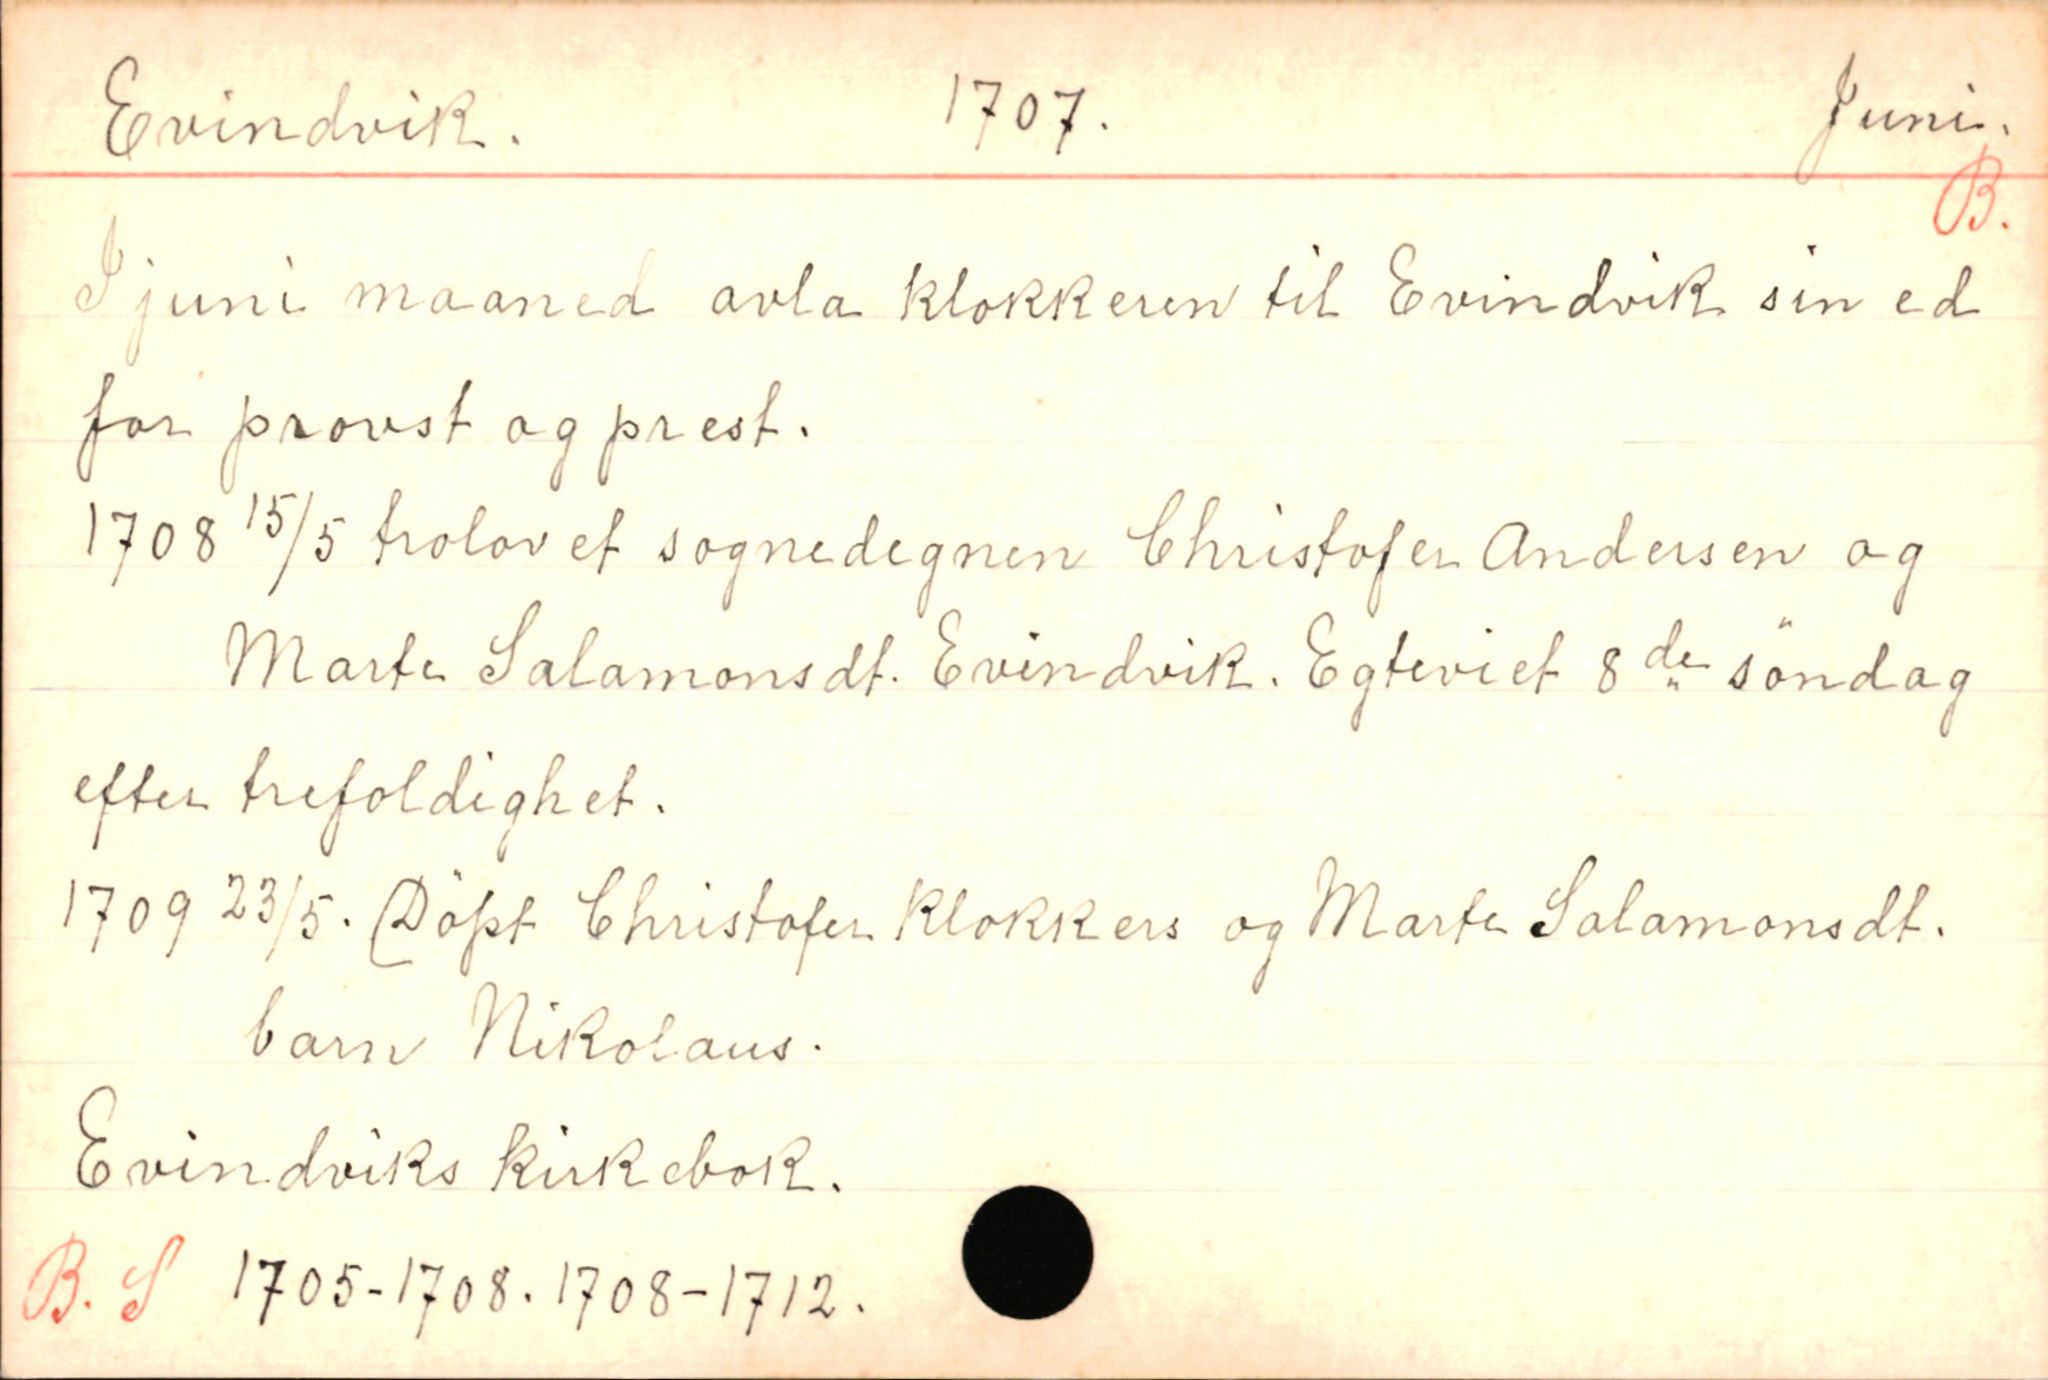 Evindvik. 1707. Juni.
B.
I juni maaned avla klokkeren til Evindvik sin ed
for provst og prest.
1708 15/5 trolovet sognedegnen Christofer Andersen og
Marte Salamonsdt. Evindvik. Egteviet 8de söndag
efter trefoldighet.
1709 23/5. Döpt Christofer Klokkers og Marte Salamonsdt.
barn Nikolaus.
Evindviks kirkebok.
B. S 1705-1708. 1708-1712.